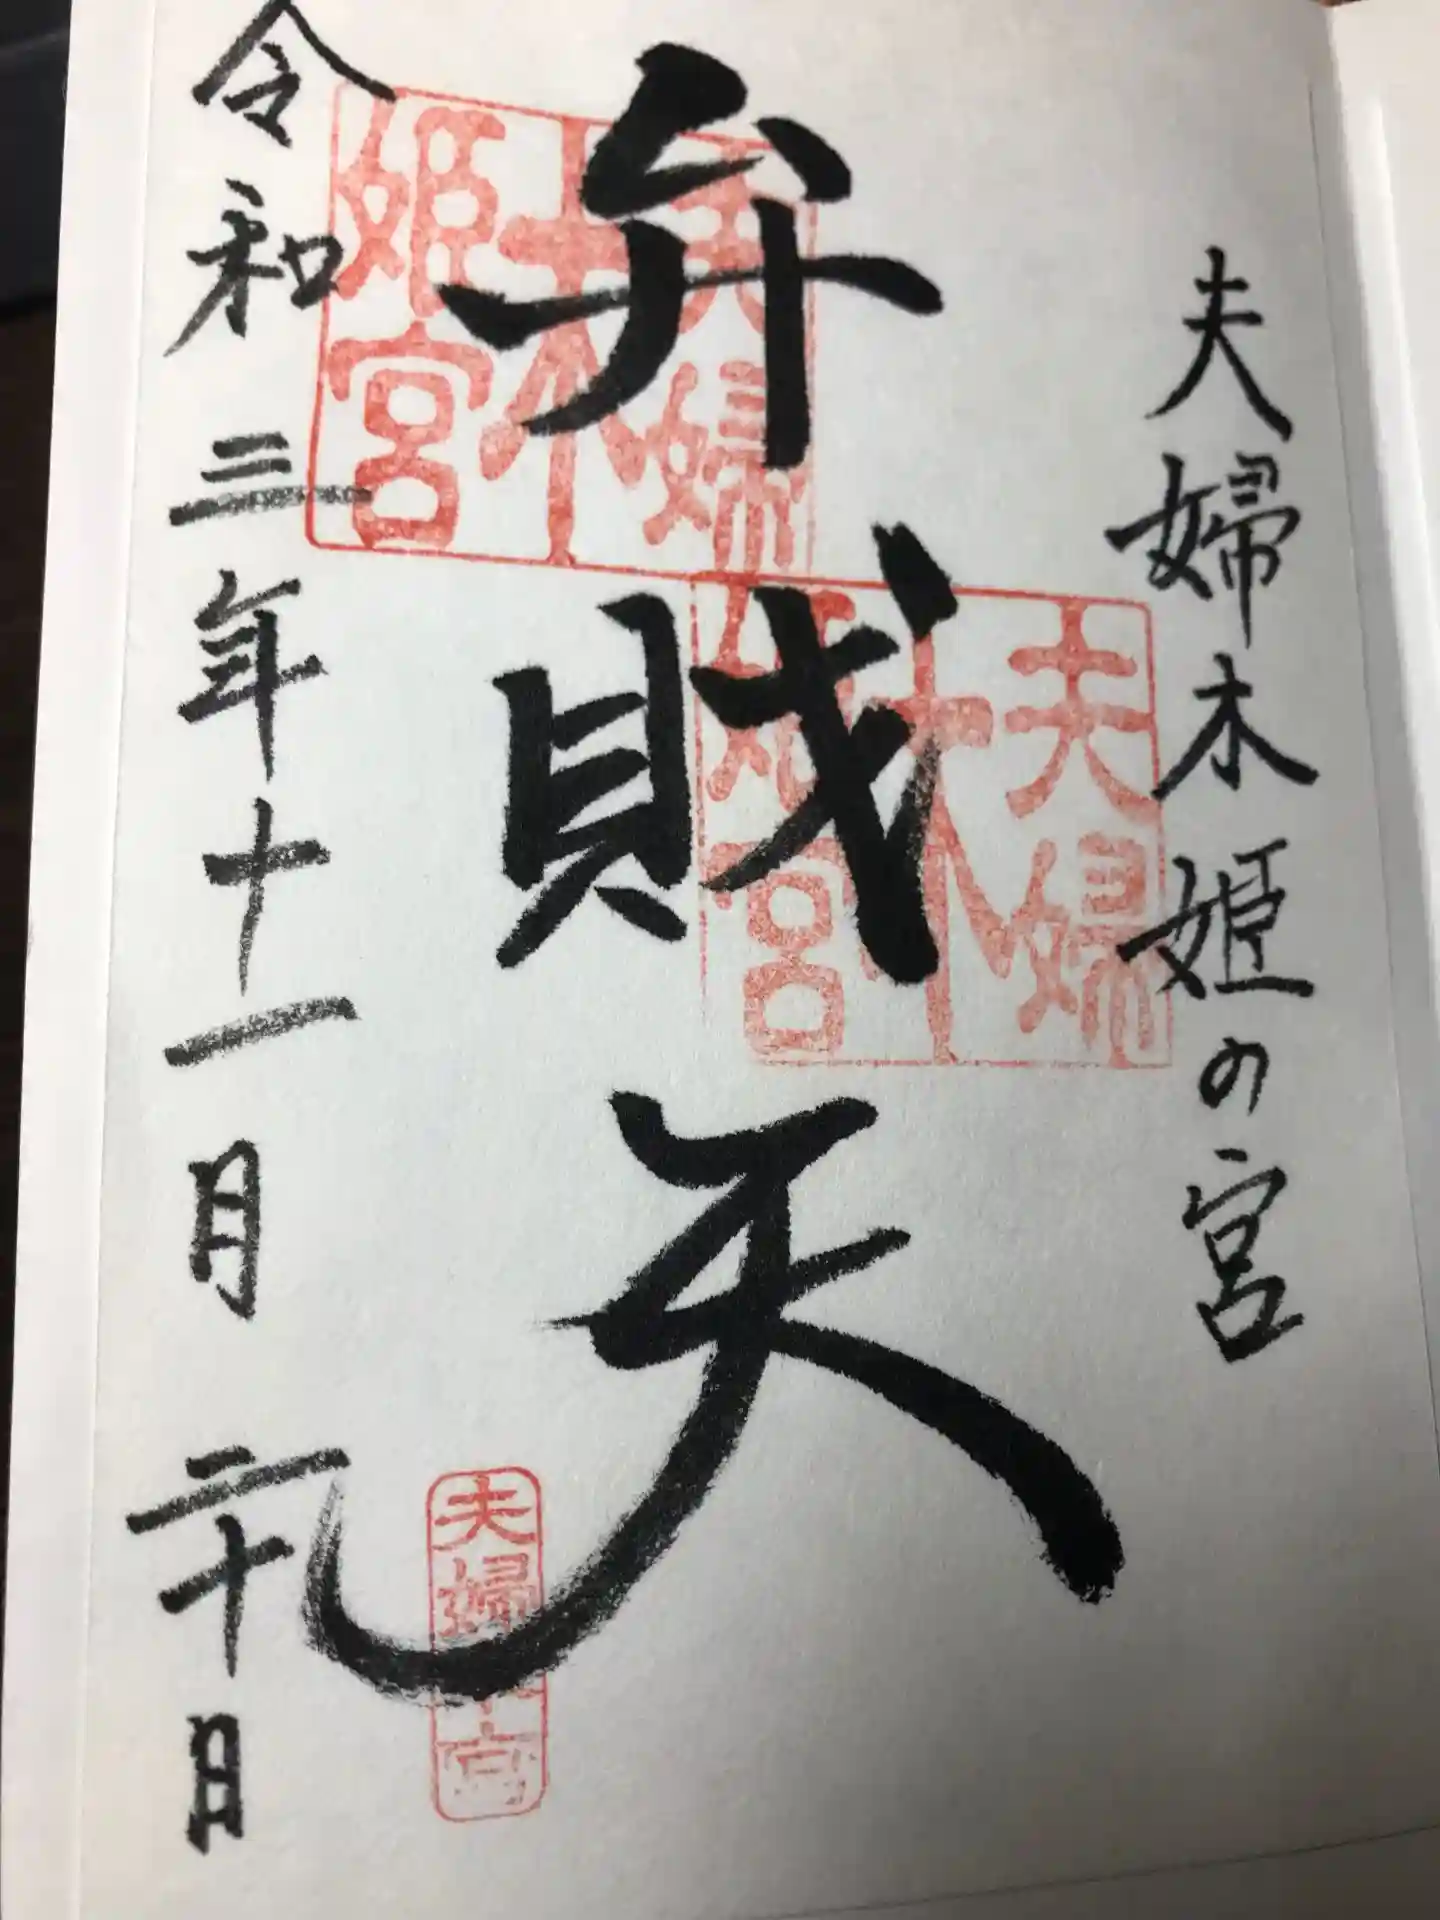 夫婦木姫の宮
弁財天
令和三年十一月二十日
夫婦
木
姫宮
夫婦
木
姫宮
夫婦木宮